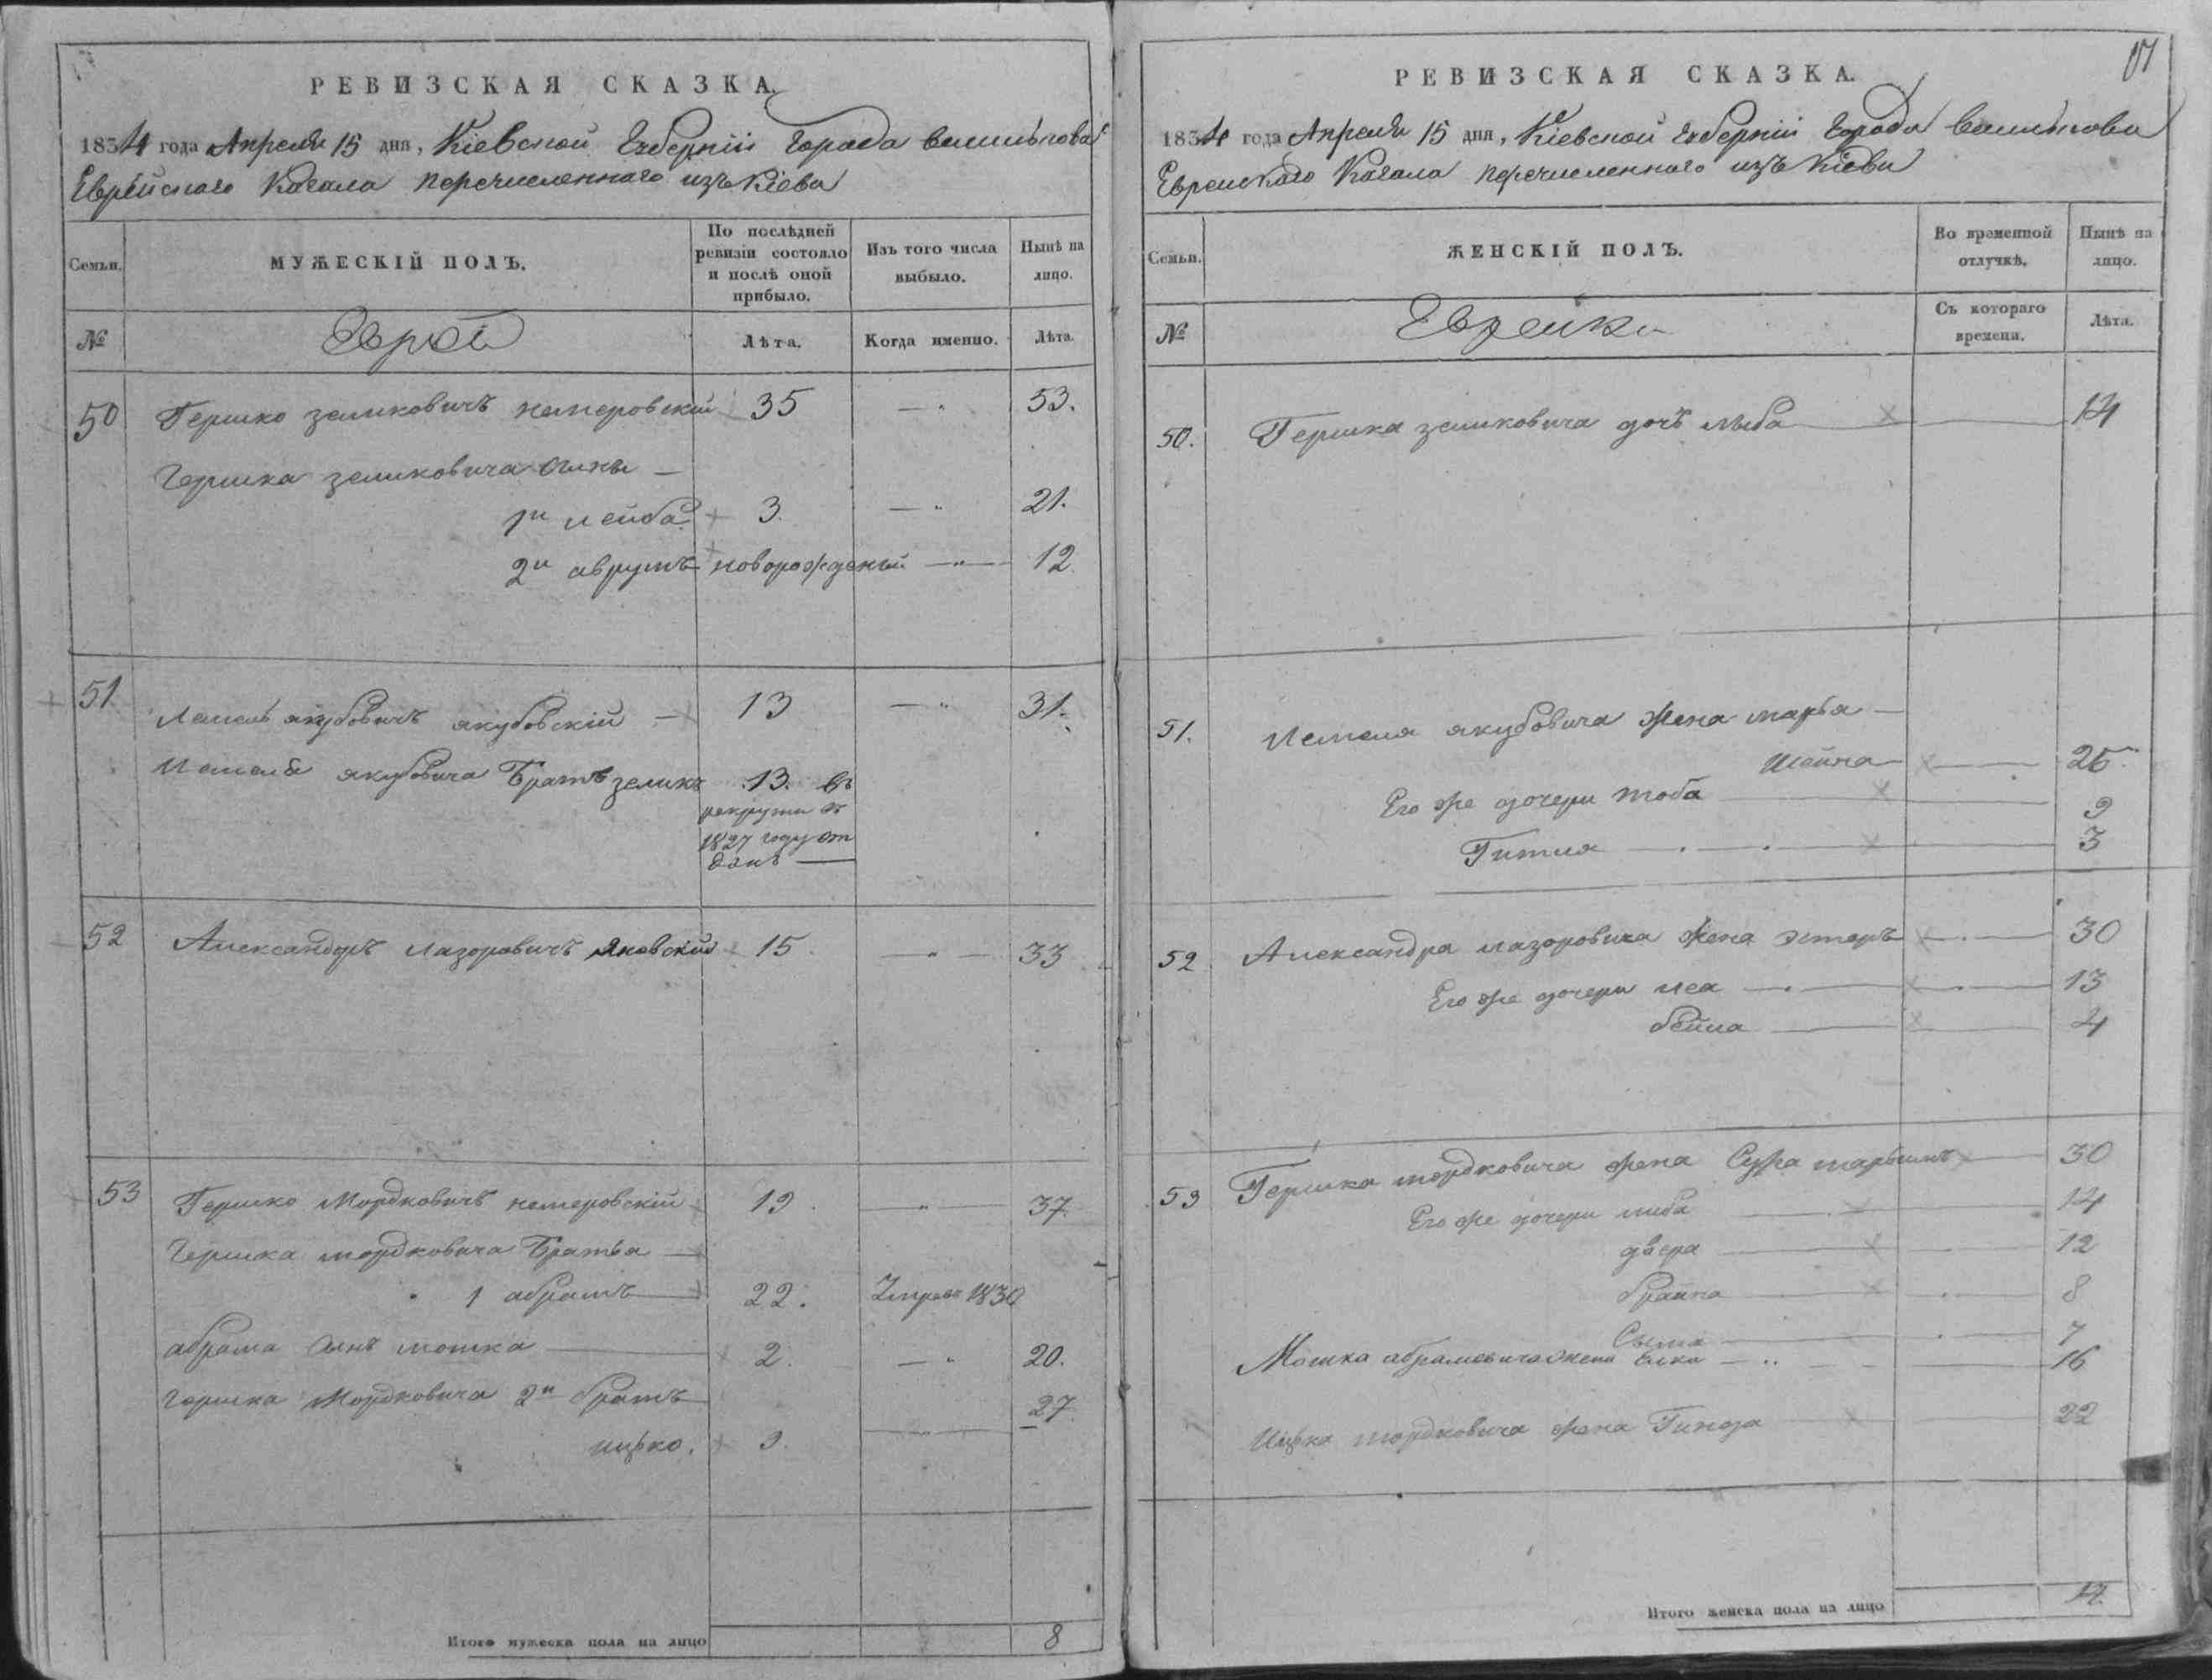 РЕВИЗСКАЯ СКАЗКА.
1834 года Апреля 15 дня, Кіевской Губерніи Города Василькова
Еврейскаго Кагала перечисленнаго изъ Кіева
Семьи.
МУЖЕСКІЙ ПОЛЪ.
По послѣдней ревизіи состояло и послѣ оной прибыло.
Изъ того числа выбыло.
Нынѣ на лицо.
№
Евреи
Лѣта.
Когда именно.
Лѣта.
50 Гершко зеликовичъ немеровскій 35 — " 53.
Гершка зеликовича сины —
1й лейба 3. — " 21.
2й аврумъ новорожденый — " — 12
51 Лемель якубовичъ якубовскій — 13 — " 31.
Лемеля якубовича Братъ зеликъ 13. въ
рекруты въ
1827 году от
данъ —
52 Александръ лазоровичъ Яновскій 15. — " — 33
53 Гершко Мордковичъ немеровскій 19. — " — 37.
Гершка мордковича Братья —
1 абрамъ 22. Умре въ 1830
абрама синъ мошка 2. — " 20.
Гершка Мордковича 2й братъ 27.
ицко. 9. — " —
Итого мужеска пола на лицо 8
РЕВИЗСКАЯ СКАЗКА.
1834 года Апреля 15 дня, Кіевской Губерніи Города Василькова
Еврейскаго Кагала перечисленнаго изъ Кіева
Семьи.
ЖЕНСКІЙ ПОЛЪ.
Во временной отлучкѣ.
Нынѣ на лицо.
№
Еврейки
Съ котораго времени.
Лѣта.
50. Гершка зеликовича дочъ лыба 14
51. Лемеля якубовича жена марья —
Шейна 25.
Его же дочери тоба 9
Гитля 3
52 Александра лазоровича жена эстеръ 30
Его же дочери леа 13
бейла 4
53 Гершка мордковича жена Сура 30
Его же дочери либа 14
двера 12
брайна 8
Сыма 7
Мошка абрамовича жена Елка 16
Ицка мордковича жена 22
Итого женска пола на лицо